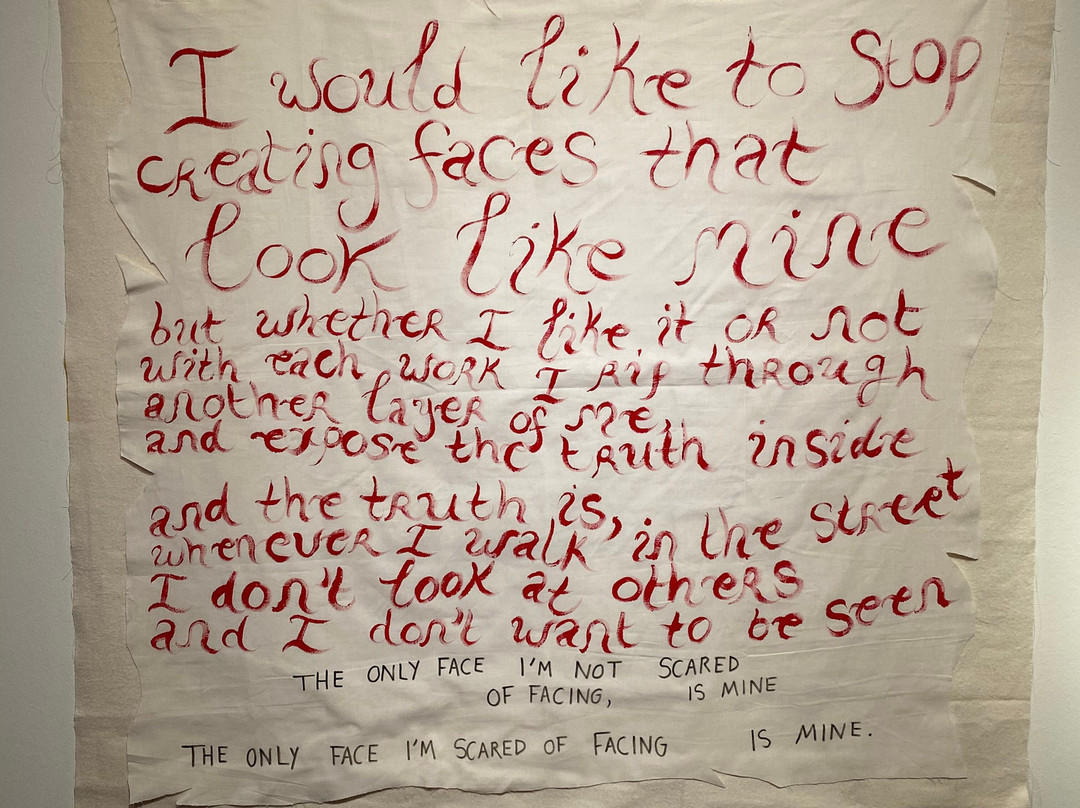 I would like to Stop
creating faces that
look like mine
but whether I like it or not
with each work I rip through
another layer of me,
and expose the truth inside
and the truth is,
whenever I walk in the street
I don't look at others
and I don't want to be seen
THE ONLY FACE I'M NOT SCARED
OF FACING, IS MINE
THE ONLY FACE I'M SCARED OF FACING IS MINE.